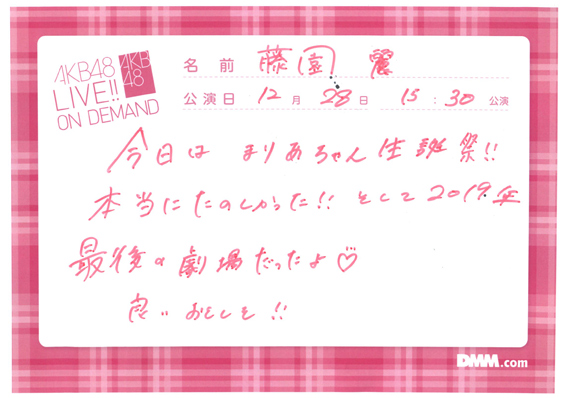 AKB48
LIVE!!
ON DEMAND
AKB
48
名前 藤園 麗
公演日 12月 28日 15:30 公演
今日は まりあちゃん 生誕祭!!
本当にたのしかった!! そして2019年
最後の劇場だったよ♡
良いおとしを!!
DMM.com